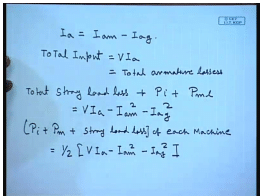 Ia = Iam - Iag.
Total Input = VIa
= Total armature losses
Total stray load loss + Pi + Pml
= VIa - Iam² - Iag²
[Pi + Pm + stray load loss] of each Machine
= 1/2 [VIa - Iam² - Iag²]